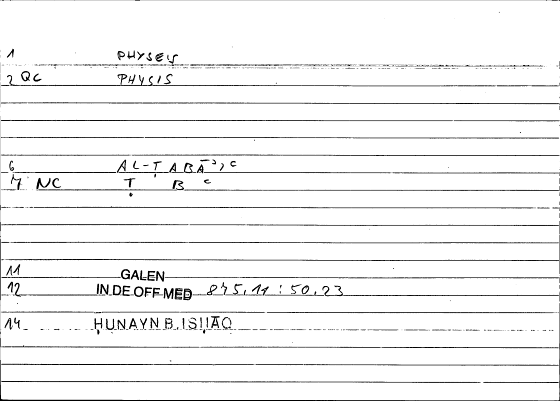 1 PHYSEIS
2 QC PHYSIS
6 AL-ṬABĀʾIʿ
7 NC Ṭ B ʿ
11 GALEN
12 IN DE OFF MED 875,11 : 50.23
14 ḤUNAYN B. ISḤĀQ